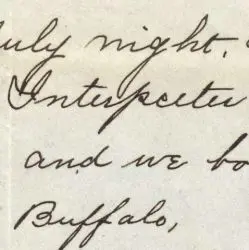 July night,
Interpreter
and we bo
Buffalo,